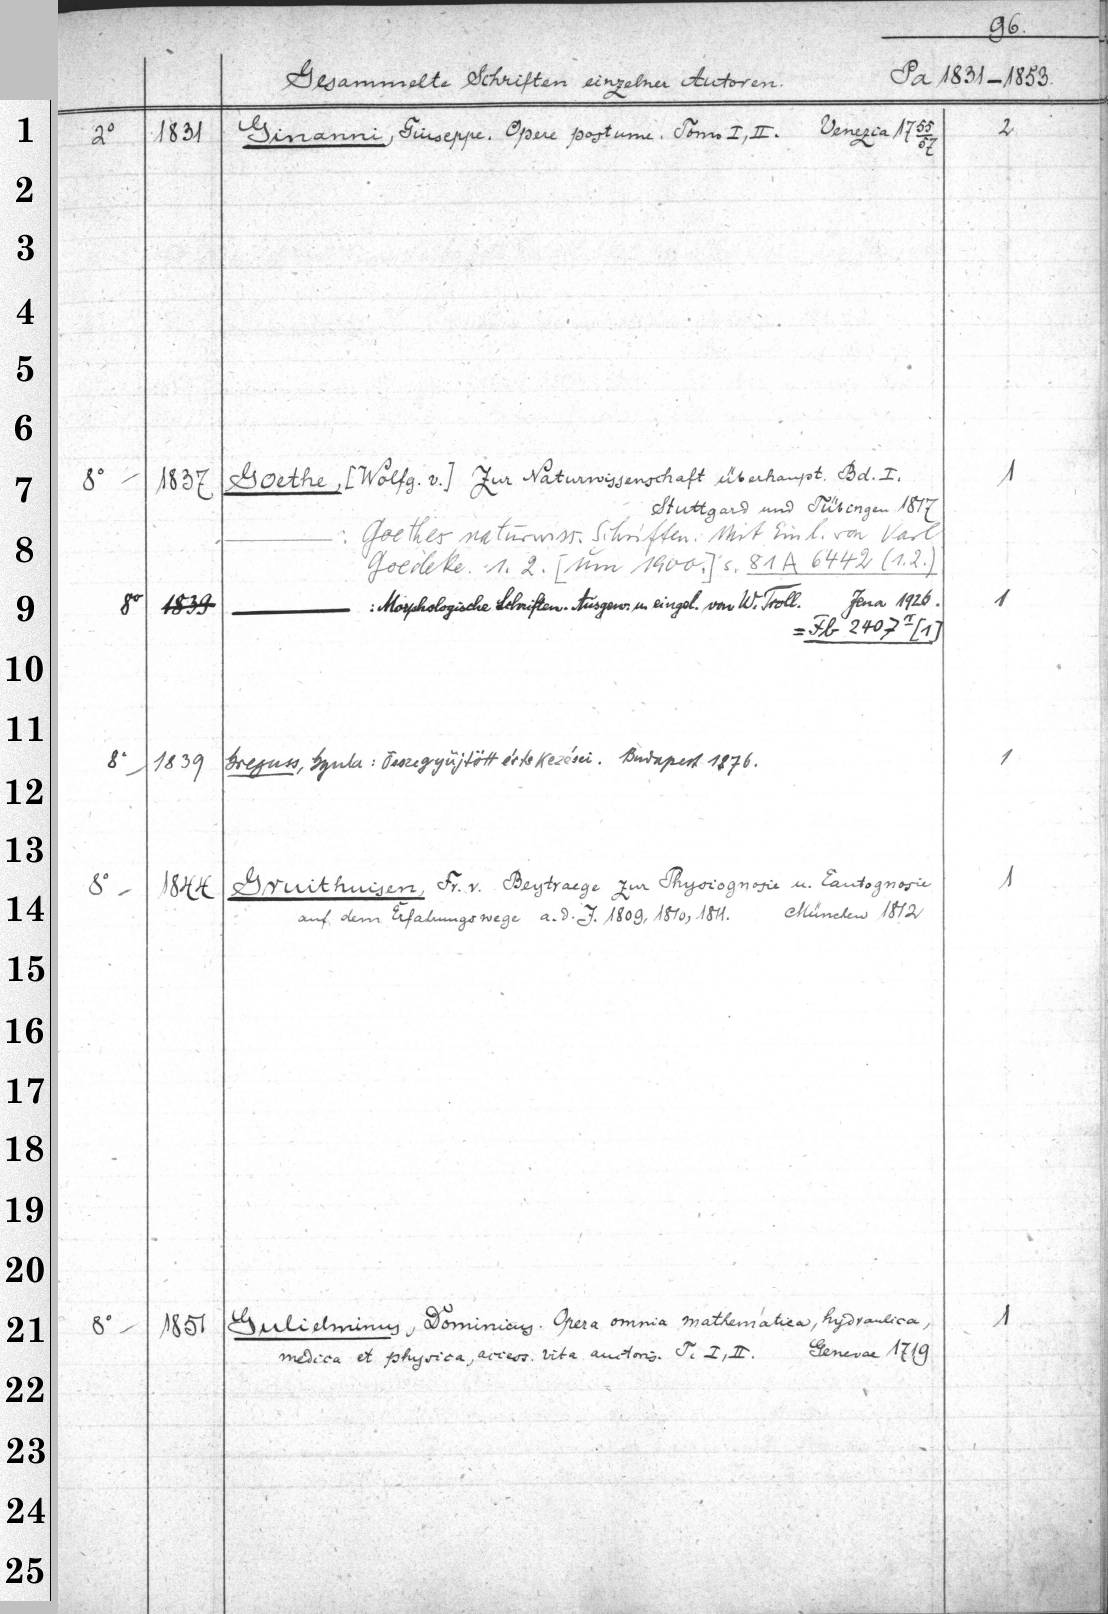 96.
Gesammelte Schriften einzelner Autoren. Pa 1831-1853.
1 2° 1831 Ginanni, Giuseppe. Opere postume. Tomo I, II. Venezia 17 55/57 2
2
3
4
5
6
7 8° — 1837 Goethe, [Wolfg. v.] Zur Naturwissenschaft überhaupt. Bd. I. 1
Stuttgard und Tübingen 1817
8 ——— : Goethes naturwiss. Schriften. Mit Einl. von Karl
Goedeke. 1. 2. [um 1900.] s. 81 A 6442 (1.2.)
9 8° 1839 ——— : Morphologische Schriften. Ausgew. u. eingel. von W. Troll. Jena 1926. 1
= Fb 2407 [1]
10
11
8° — 1839 Greguss, Gyula: Összegyüjtött értekezései. Budapest 1876. 1
12
13
8° — 1844 Gruithuisen, Fr. v. Beytraege zur Physiognosie u. Eautognosie 1
14 auf dem Erfahrungswege a. d. J. 1809, 1810, 1811. München 1812
15
16
17
18
19
20
21 8° — 1851 Gulielminus, Dominicus. Opera omnia mathematica, hydraulica, 1
medica et physica, access. vita auctoris. T. I, II. Genevae 1719
22
23
24
25